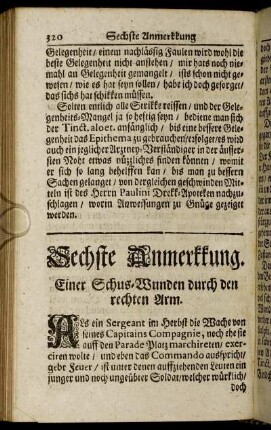 320 Sechste Anmerkkung
Gelegenheit / einem nachlässig Faulen wird wohl die
beste Gelegenheit nicht anstehen / mir hats noch nie-
mahl an Gelegenheit gemangelt / ists schon nicht ge-
wesen / wie es hat seyn sollen / habe ich doch gesorget /
das sichs hat schikken müssen.
Solten entlich alle Strikke reissen / und der Gele-
genheits-Mangel ja so heftig seyn / bediene man sich
der Tinct. aloet. anfänglich / bis eine bessere Gele-
genheit das Epithema zu gebrauchen / erfolget / es wird
auch ein jeglicher Artzney-Verständiger in der äusser-
sten Noht etwas nüzliches finden können / womit
er sich so lang behelffen kan / bis man zu bessern
Sachen gelanget / von dergleichen geschwinden Mit-
teln ist des Herrn Paulini Drekk-Apoteken nachzu-
schlagen / worin Anweisungen zu Gnüge gezeiget
werden.
Sechste Anmerkkung.
Einer Schus-Wunden durch den
rechten Arm.
Als ein Sergeant im Herbst die Wache von
seines Capitains Compagnie, noch ehe sie
auff den Parade Platz marchireten / exer-
ciren wolte / und eben das Commando ausspricht /
gebt Feuer / ist unter denen auffziehenden Leuten ein
junger und noch ungeübter Soldat / welcher würklich /
doch